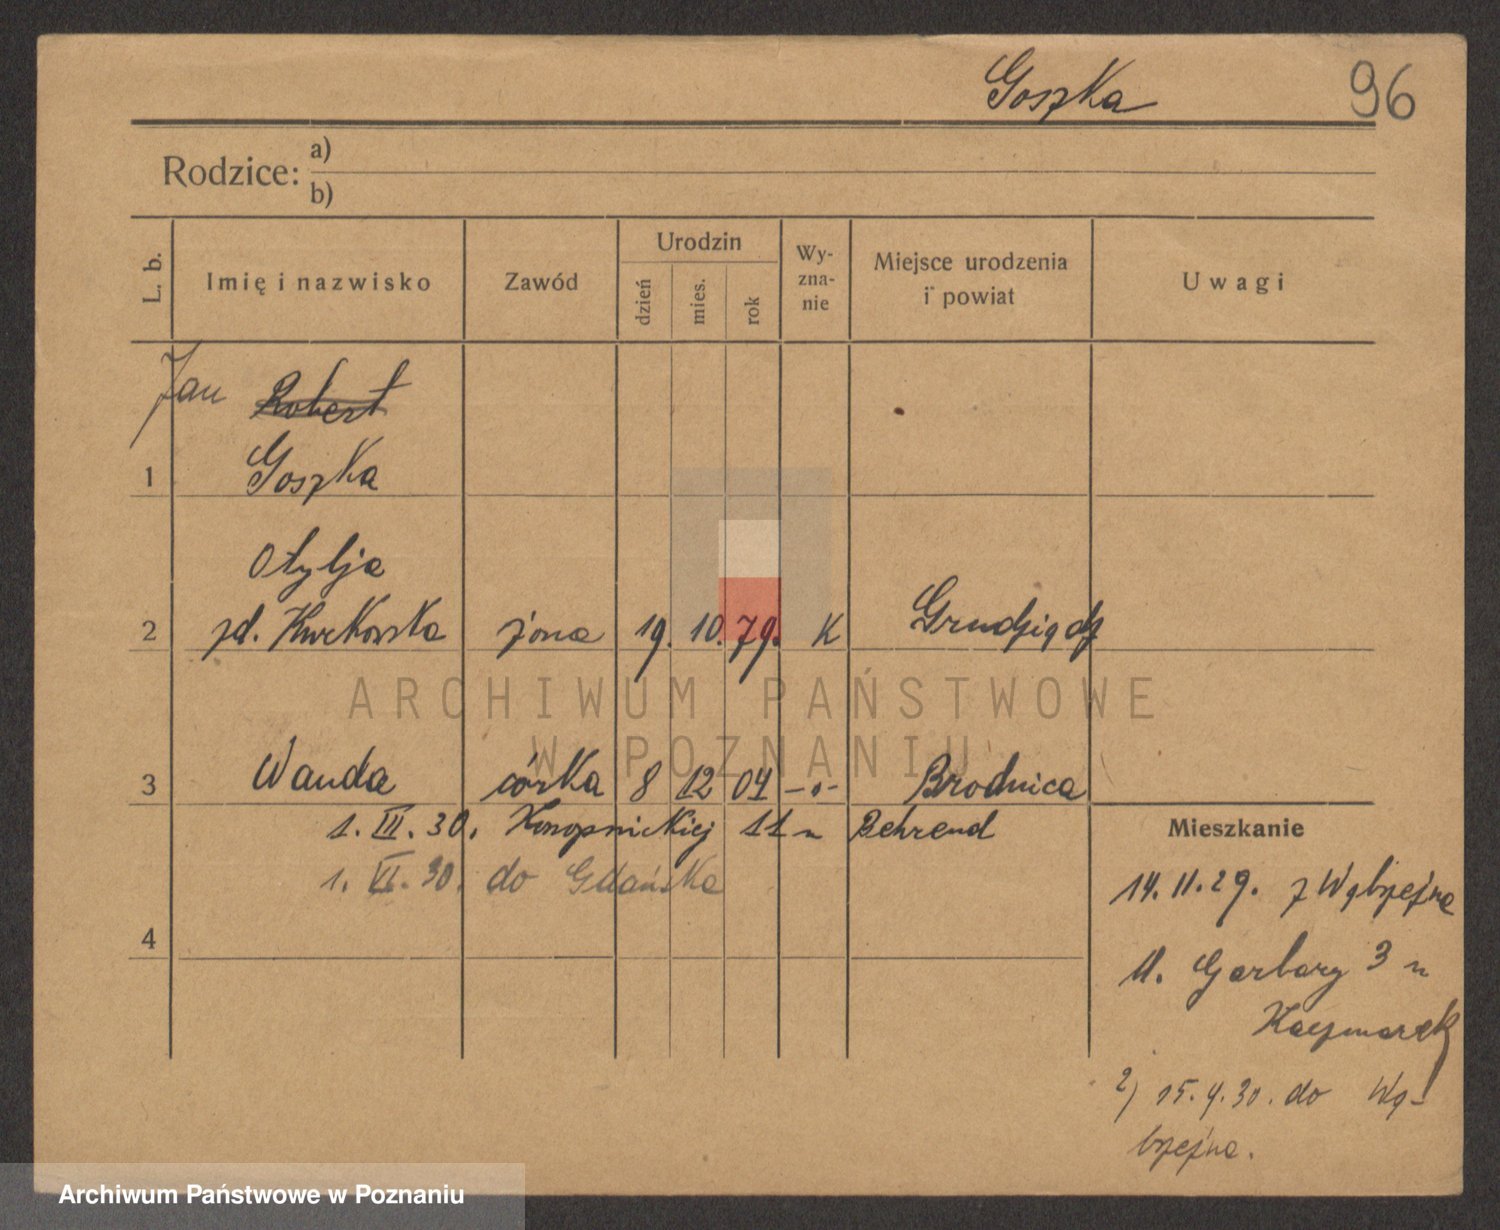 Goszka 96
Rodzice: a)
b)
L. b. Imię i nazwisko Zawód Urodzin dzień mies. rok Wy-zna-nie Miejsce urodzenia i powiat Uwagi
Jan Robert
1 Goszka
Otylja
2 zd. żona 19. 10. 79. K Grudziądz
ARCHIWUM PAŃSTWOWE
W POZNANIU
3 Wanda córka 8 12 04 -"- Brodnica
1. III. 30. Konopnickiej 11 u Behrend
Mieszkanie
1. VI. 30. do Gdańska
14.11.29. z Wąbrzeźna
4
ul. Garbary 3 u
Kaczmarek
2) 15.4.30. do Wą-
brzeźna.
Archiwum Państwowe w Poznaniu